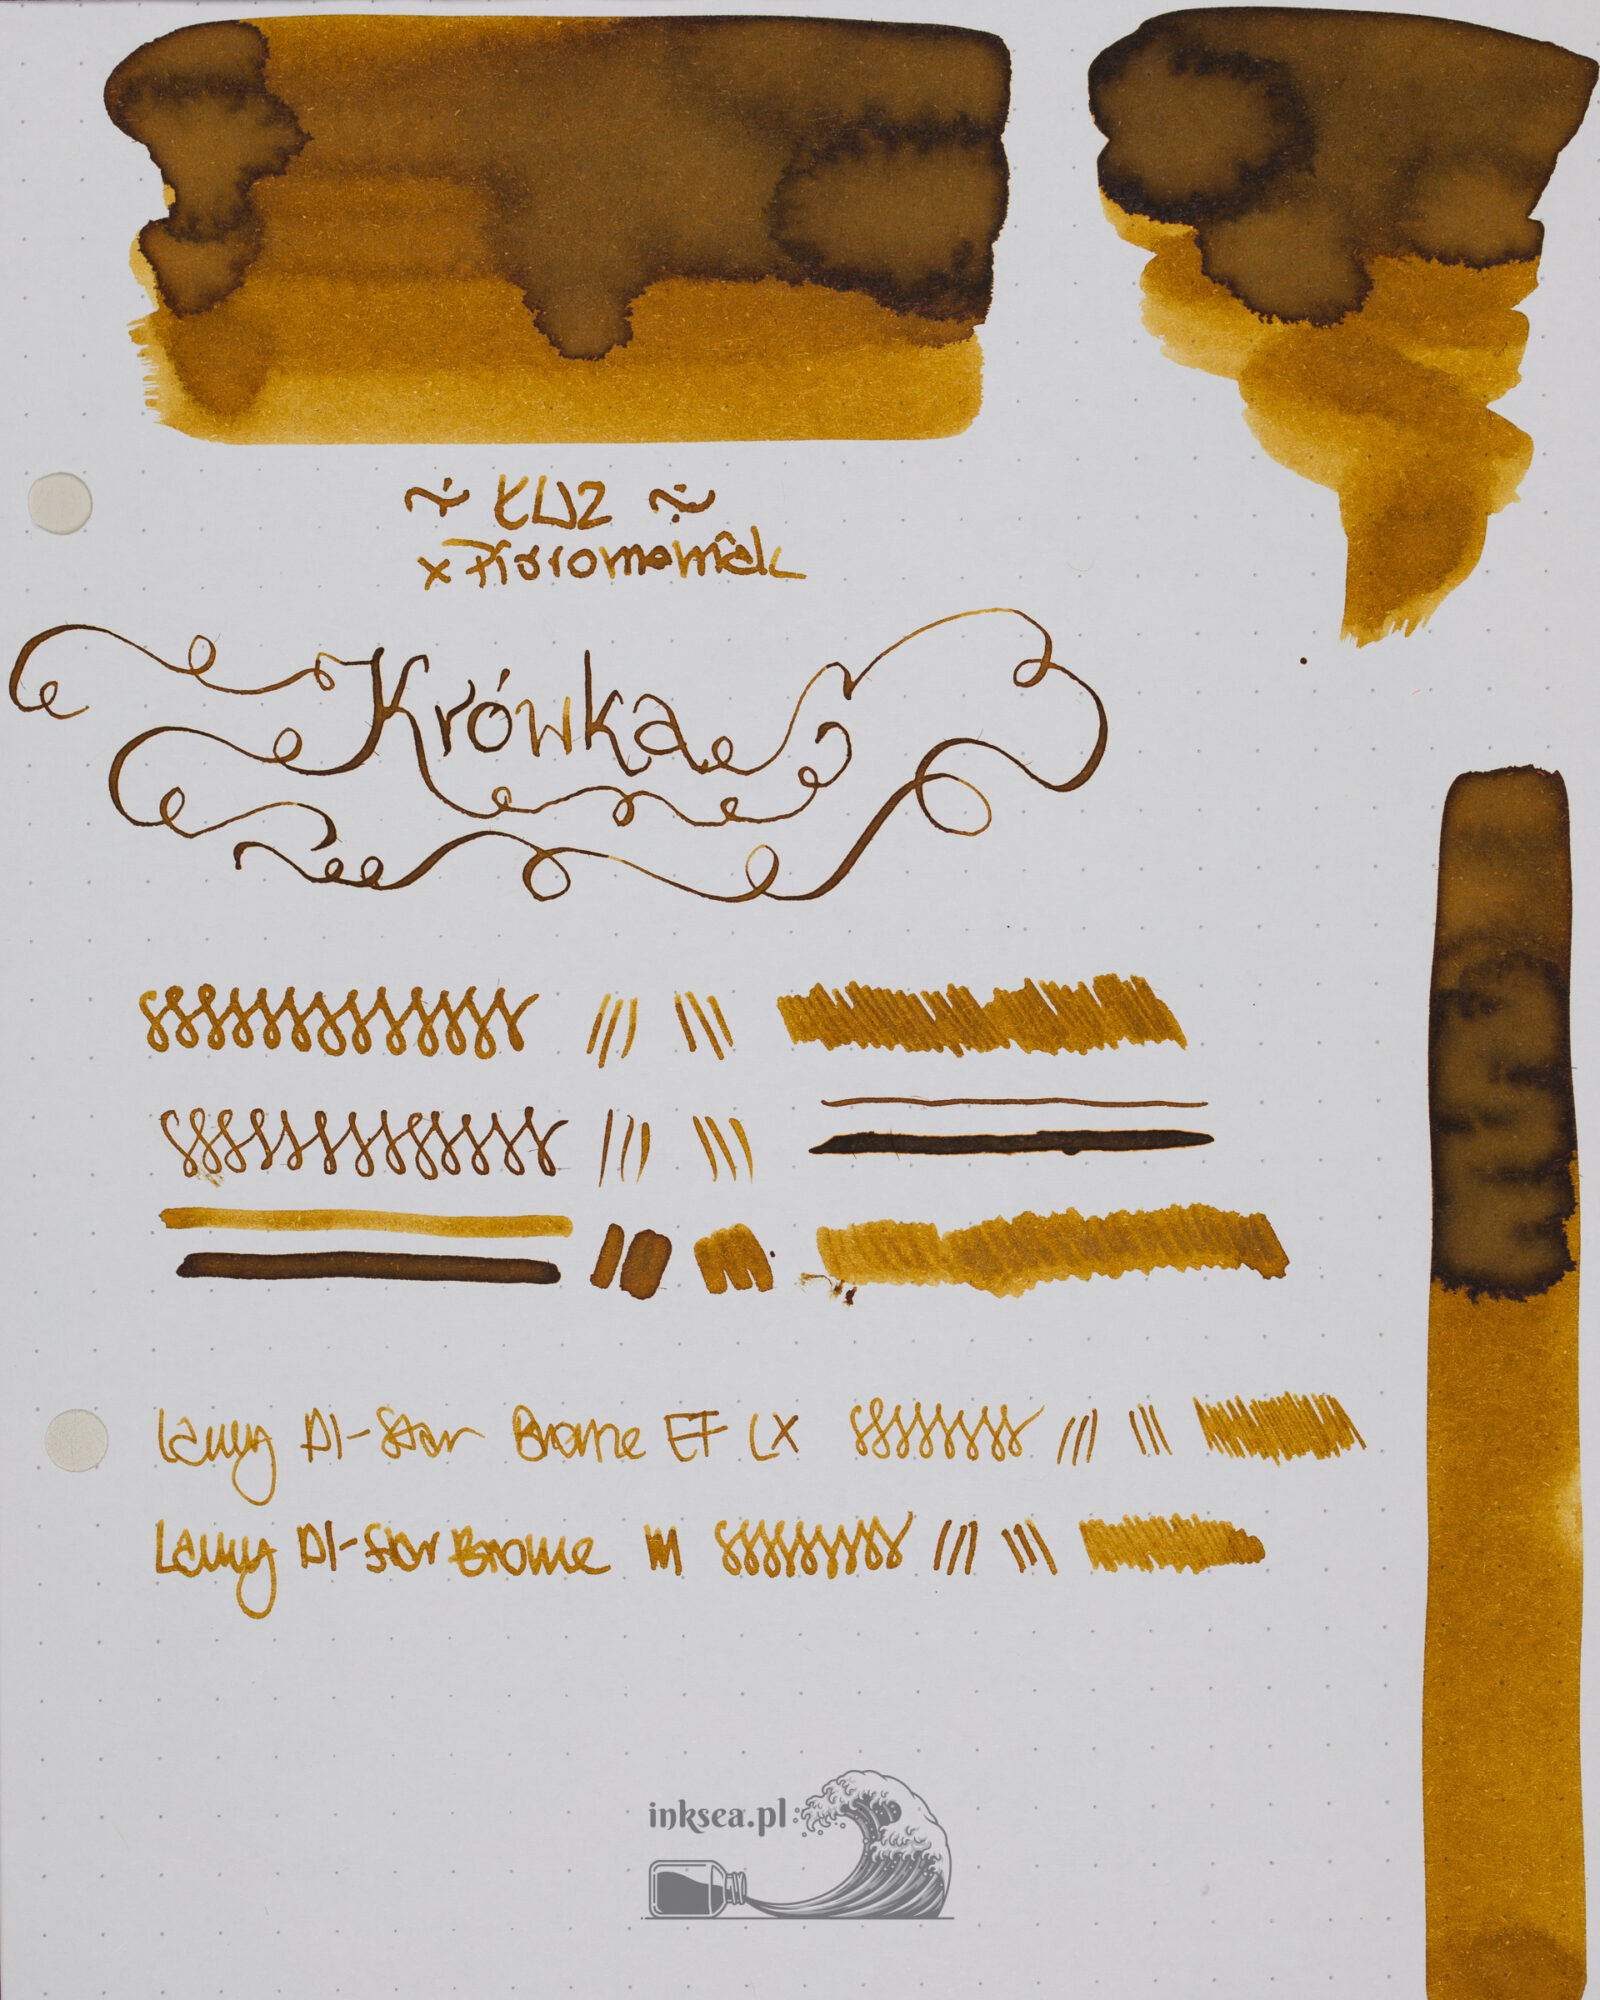 ~ KWZ ~
x Pióromaniak
Krówka
Lamy Al-Star Bronze EF LX
Lamy Al-Star Bronze M
inksea.pl